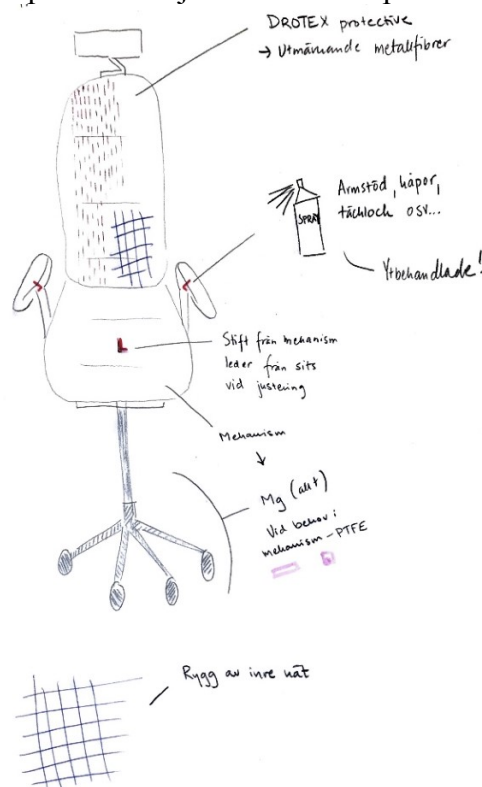 DROTEX protective
→ Utmärkande metallfibrer
SPRAY
Armstöd, kåpor,
täcklock osv...
Ytbehandlade!
Stift från mekanism
leder från sits
vid justering
Mekanism
Mg (allt)
Vid behov i
mekanism - PTFE
Rygg av inre nät